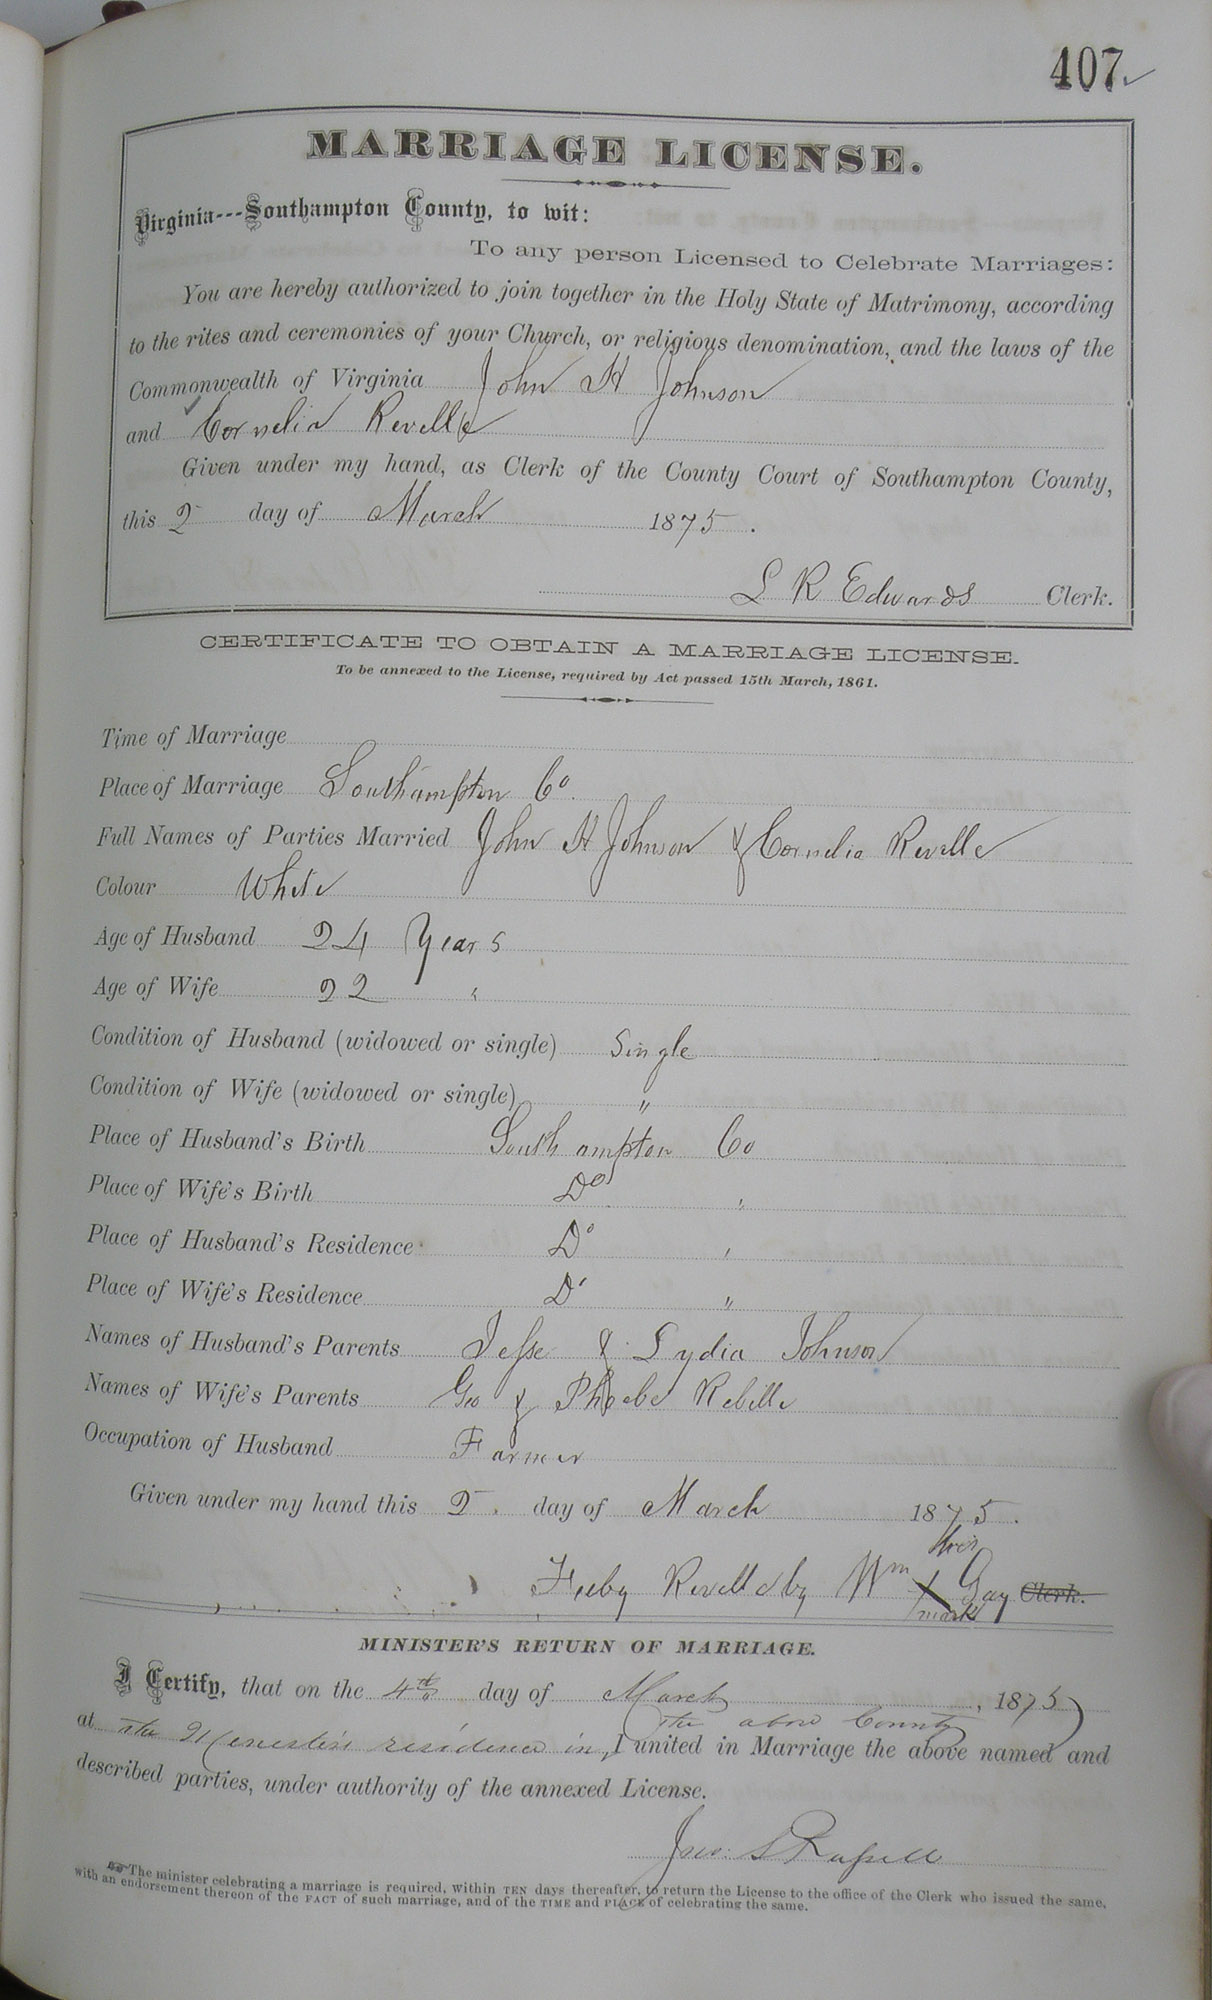 407
MARRIAGE LICENSE.
Virginia---Southampton County, to wit:
To any person Licensed to Celebrate Marriages:
You are hereby authorized to join together in the Holy State of Matrimony, according
to the rites and ceremonies of your Church, or religious denomination, and the laws of the
Commonwealth of Virginia John H Johnson
and Cornelia Revelle
Given under my hand, as Clerk of the County Court of Southampton County,
this 2 day of March 1875.
L R Edwards Clerk.
CERTIFICATE TO OBTAIN A MARRIAGE LICENSE.
To be annexed to the License, required by Act passed 15th March, 1861.
Time of Marriage
Place of Marriage Southampton Co.
Full Names of Parties Married John H Johnson & Cornelia Revelle
Colour White
Age of Husband 24 Years
Age of Wife 22 "
Condition of Husband (widowed or single) Single
Condition of Wife (widowed or single) "
Place of Husband's Birth Southampton Co
Place of Wife's Birth Do "
Place of Husband's Residence Do "
Place of Wife's Residence Do "
Names of Husband's Parents Jesse & Lydia Johnson
Names of Wife's Parents Geo & Phoebe Rebille
Occupation of Husband Farmer
Given under my hand this 2. day of March 1875.
his
Feeby Revelle by Wm X Gay Clerk.
mark
MINISTER'S RETURN OF MARRIAGE.
I Certify, that on the 4th day of March, 1875)
the above County
at the Minister's residence in, I united in Marriage the above named and
described parties, under authority of the annexed License.
Jno. S
The minister celebrating a marriage is required, within TEN days thereafter, to return the License to the office of the Clerk who issued the same,
with an endorsement thereon of the FACT of such marriage, and of the TIME and PLACE of celebrating the same.